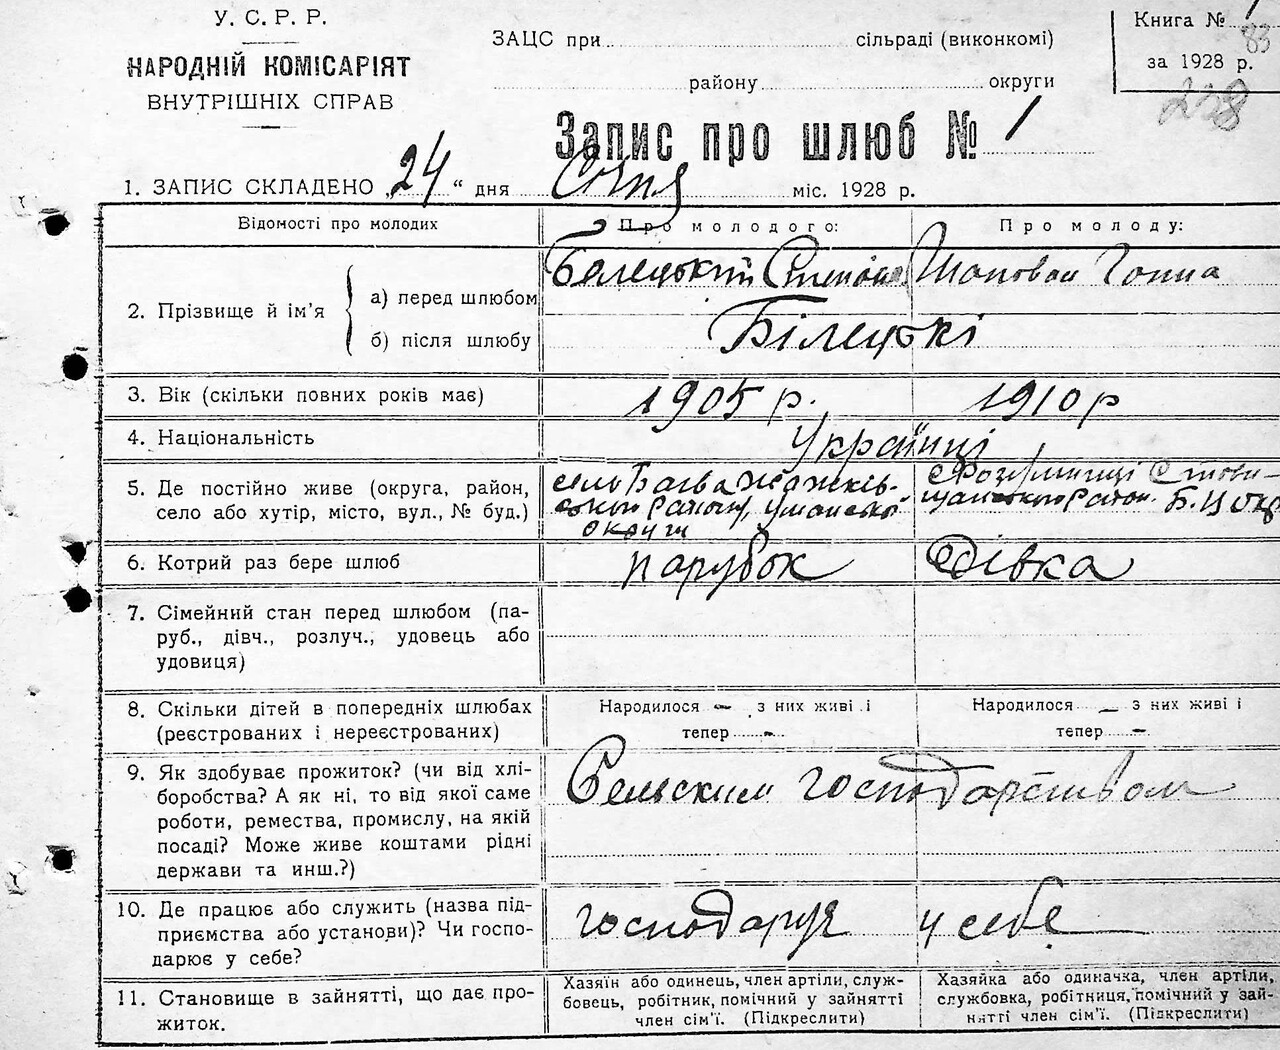 У. С. Р. Р.
НАРОДНІЙ КОМІСАРІЯТ
ВНУТРІШНІХ СПРАВ
ЗАЦС при сільраді (виконкомі)
району округи
Книга № 1
83
за 1928 р.
228
Запис про шлюб № 1
1. ЗАПИС СКЛАДЕНО „24“ дня Січня міс. 1928 р.
Відомості про молодих
Про молодого:
Про молоду:
2. Прізвище й ім'я
а) перед шлюбом
б) після шлюбу
Білецький Степан
Шаповал Ганна
Білецькі
3. Вік (скільки повних років має)
1905 р.
1910 р
4. Національність
Українці
5. Де постійно живе (округа, район,
село або хутір, місто, вул., № буд.)
село Багва
району, Уманської
округи
район. Б. Ц Окр
6. Котрий раз бере шлюб
парубок
дівка
7. Сімейний стан перед шлюбом (па-
руб., дівч., розлуч., удовець або
удовиця)
8. Скільки дітей в попередніх шлюбах
(реєстрованих і нереєстрованих)
Народилося – з них живі і
тепер –
Народилося – з них живі і
тепер –
9. Як здобуває прожиток? (чи від хлі-
боробства? А як ні, то від якої саме
роботи, ремества, промислу, на якій
посаді? Може живе коштами рідні
держави та инш.?)
Сельским господарством
10. Де працює або служить (назва під-
приємства або установи)? Чи госпо-
дарює у себе?
господарує у себе
11. Становище в зайнятті, що дає про-
житок.
Хазяїн або одинець, член артіли, служ-
бовець, робітник, помічний у зайнятті
член сім'ї. (Підкреслити)
Хазяйка або одиначка, член артіли,
службовка, робітниця, помічний у зай-
нятті член сім'ї. (Підкреслити)